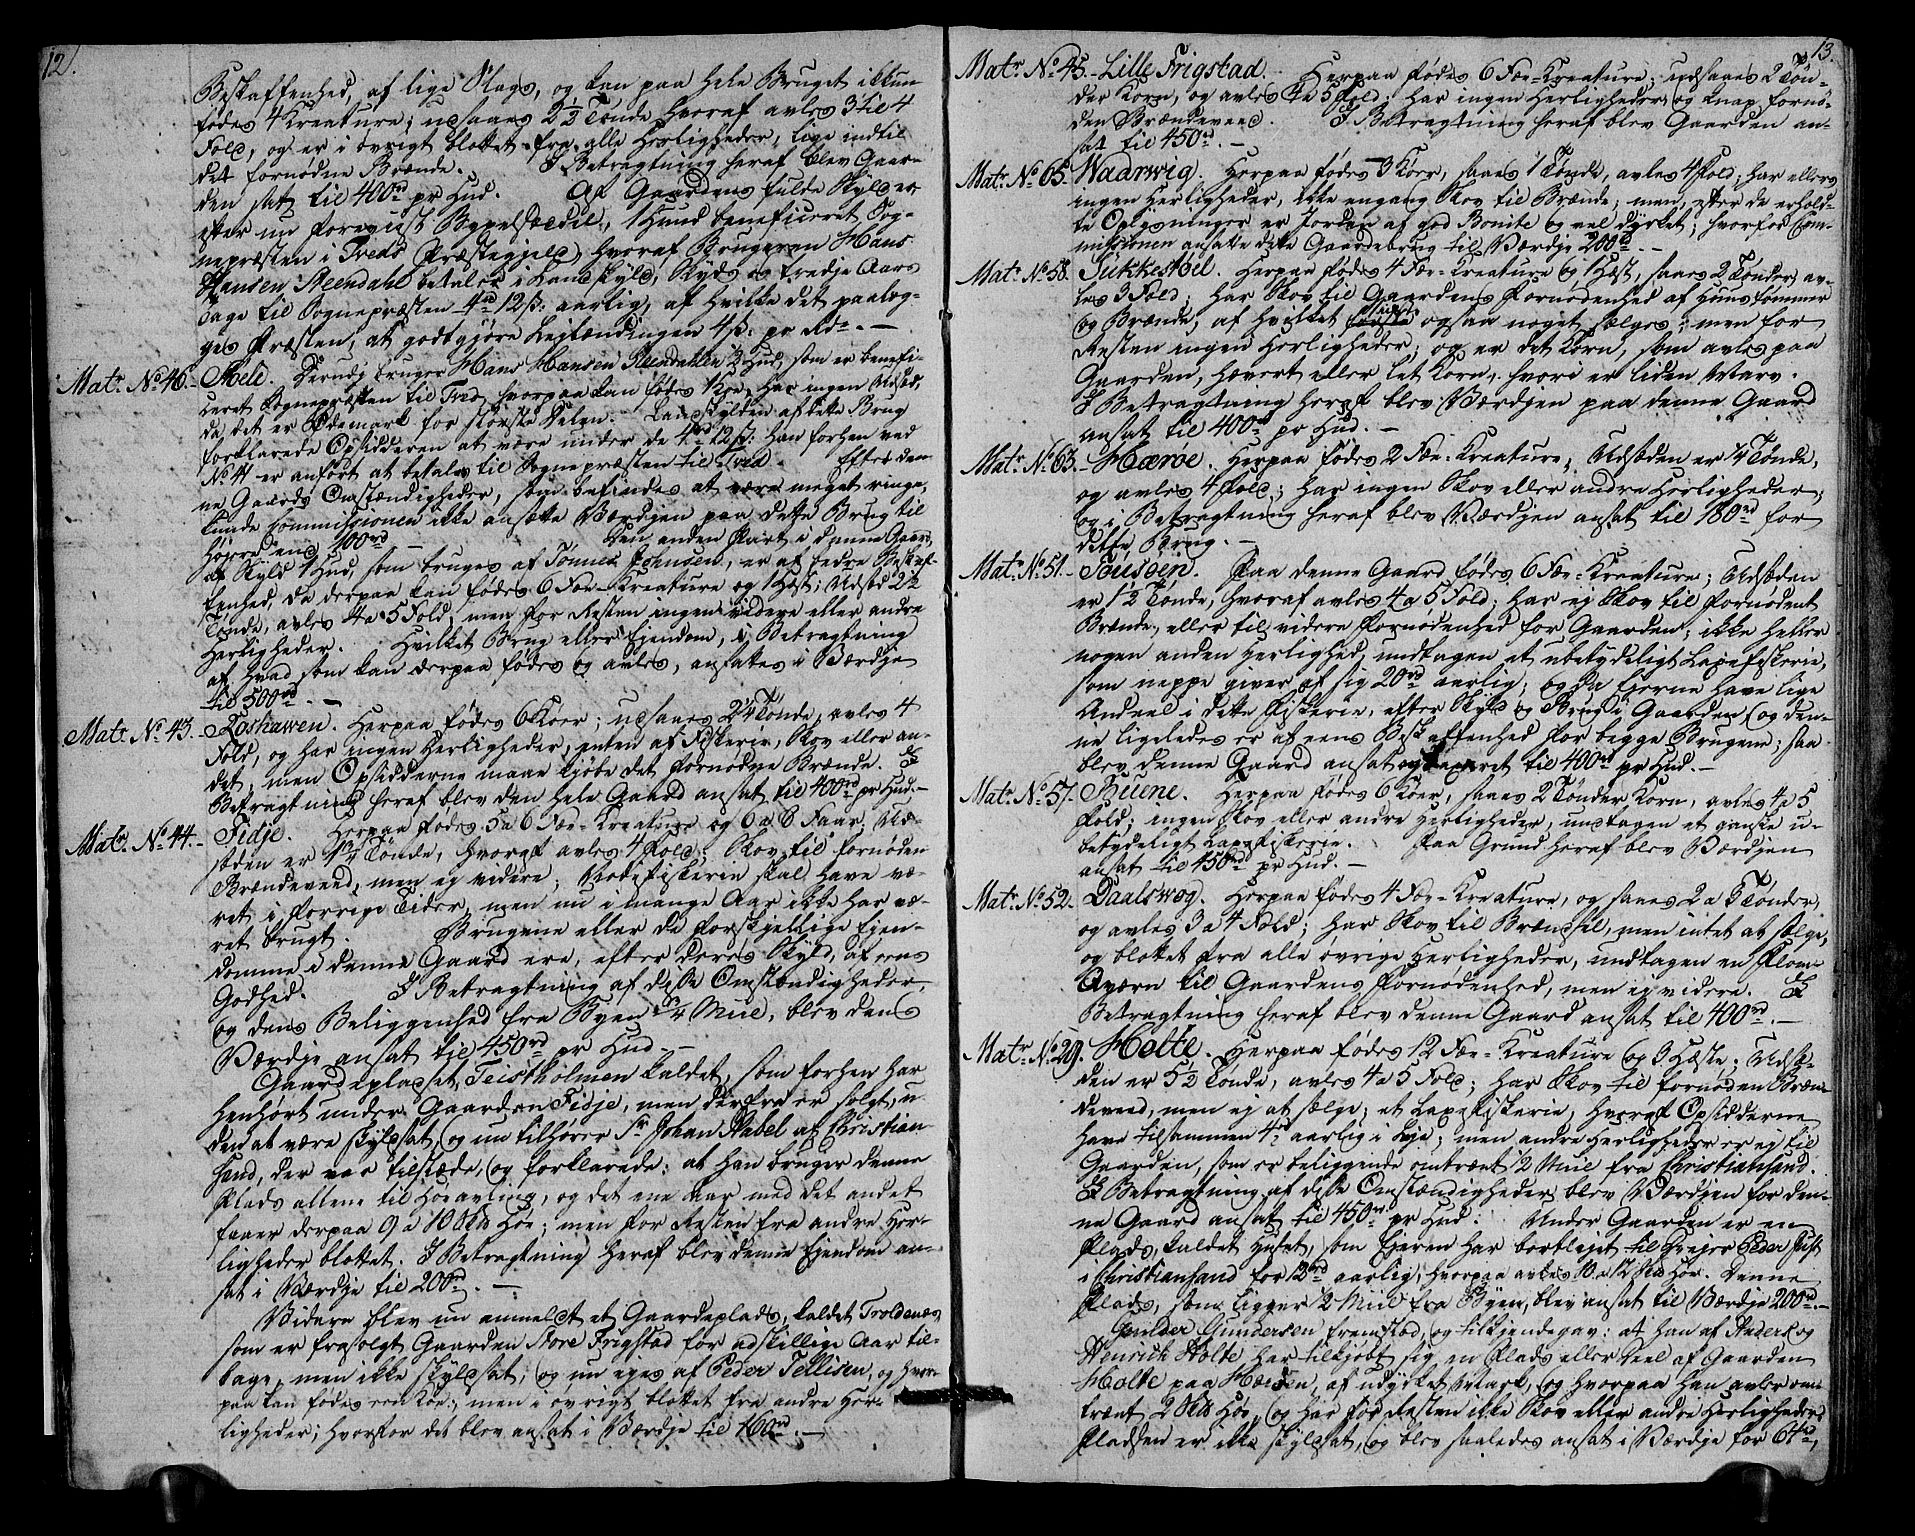 12.
Beskaffenhed, af lige Slags, og kan paa hele Bruget ikkun
fødes 4 Kreature; udsaaes 2½ Tønde, hvoraf avles 3 til 4
Fold, og er i øvrigt blottet fra alle Herligheder, lige indtil
det fornødne Brænde. I Betragtning heraf blev Gaar-
den sat til 400rd pr Hud. Af Gaardens fulde Skyld er
efter nu foreviist Bygselseddel, 1 Hud beneficeret Sog-
nepræsten i Treds Præstegjeld, hvoraf Brugeren Hans
Hansen Steendahl betaler i Landskyld, Skyds og tredje Aars
Tage til Sognepræsten 4rd 12ß: aarlig, af hvilke det paalæg-
ges Præsten, at godtgjøre Lejlændingen 4ß: pr Rdr. —
Matr. No. 46. – Stele. Dernæst bruger Hans Hansen Steendahlen ½ Hud, som er benefi-
ceret Sognepræsten til Tred, hvorpaa kan fødes 1 Koe; Har ingen Udsæd,
da det er Ødemark for største Delen. Landskylden af dette Brug
forklarede Opsidderen at være under de 4rd 12ß: han forhen ved
No. 41 er anført at betales til Sognepræsten til Tred. Efter den-
ne Gaards Omstændigheder, som befindes at være meget ringe,
kunde Commissionen ikke ansætte Værdjen paa dette Brug til
højere end 100rd Den anden Part i denne Gaard,
af Skyld 1 Hud, som bruges af Tønnes Johnsen, er af bedre Beskaf-
fenhed, da derpaa kan fødes 6 Fæe-Kreature og 1 Hæst; Udsæd 2½
Tønde, avles 4 a 5 Fold; men for Resten ingen videre eller andre
Herligheder. Hvilket Brug eller Ejendom, i Betragtning
af hvad som kan derpaa fødes og avles, ansattes i Værdje
til 500rd. —
Matr. No. 43. – Roshawen. Herpaa fødes 6 Køer; udsaaes 2¼ Tønde, avles 4
Fold, og har ingen Herligheder, enten af Fiskerie, Skov eller an-
det, men Opsidderne maae kjøbe det fornødne Brænde. I
Betragtning heraf blev den hele Gaard ansat til 400rd pr Hud. —
Matr. No. 44. – Fidje. Herpaa fødes 5 a 6 Fæe-Kreature og 6 a 8 Faar. Ud-
sæden er 1¾ Tønde, hvoraf avles 4 Fold; Skov til fornøden
Brændeveed, men ej videre; Nodefiskerie skal have væ-
ret i forrige Tider, men nu i mange Aar ikke har væ-
ret brugt. Brugene eller de forskjellige Ejen-
domme i denne Gaard ere, efter deres Skyld, af eens
Godhed. I Betragtning af disse Omstændigheder,
og dens Beliggenhed fra Byen ¼ Miil, blev dens
Værdje ansat til 450rd pr Hud. —
Gaardeplasset, Teistholmen kaldet, som forhen har
henhørt under Gaarden Fidje, men derfra er solgt, u-
den at være skyldsat, og nu tilhører Sr. Johan Nabel af Christian-
sand, der var tilstæde, og forklarede: at han bruger denne
Plads allene til Høeavling, og det ene Aar med det andet
faaer derpaa 9 a 10 Læs Høe; men for Resten fra andre Her-
ligheder blottet. I Betragtning heraf blev denne Ejendom an-
sat i Værdje til 200rd. —
Videre blev nu anmeldt et Gaardeplads, kaldet Troldenæs,
som er frasolgt Gaarden Store Frigstad for adskillige Aar til-
bage, men ikke skyldsat; og nu eges af Peder Tellisen, og hvor-
paa kan fødes een Koe; men i øvrigt blottet fra andre Her-
ligheder; hvorfor det blev ansat i Værdje til 100rd. —
13.
Matr. No. 45. – Lille Frigstad. Herpaa fødes 6 Fæe-Kreature; udsaaes 2 Tøn-
der Korn, og avles 4 a 5 Fold; har ingen Herligheder, og knap fornø-
den Brændeveed. I Betragtning heraf blev Gaarden an-
sat til 450rd. —
Matr. No. 65. Waarwig. Herpaa fødes 3 Køer, saaes 1 Tønde, avles 4 Fold; har ellers
ingen Herligheder, ikke engang Skov til Brænde; men, efter de erhold-
te Oplysninger er Jorden af god Bonite og vel dyrket; hvorfor Com-
missionen ansatte dette Gaardebrug til Værdje 200rd. —
Matr. No. 58. Tükkestoel. Herpaa fødes 4 Fæe-Kreature og 1 Hæst, saaes 2 Tønder, av-
les 3 Fold; har Skov til Gaardens Fornødenhed af Huustømmer
og Brænde, af hvilket ogsaa noget sælges; men for
Resten ingen Herligheder; og er det Korn, som avles paa
Gaarden, Hævert eller let Korn, hvori er liden Marv.
I Betragtning heraf blev Værdjen paa denne Gaard
ansat til 400rd pr Hud. —
Matr. No. 63. – Hæroe. Herpaa fødes 2 Fæe-Kreature; Udsæden er ¼ Tønde,
og avles 4 Fold; har ingen Skov eller andre Herligheder;
og i Betragtning heraf blev Værdjen ansat til 180rd for
dette Brug. —
Matr. No. 51. – Toussøen. Paa denne Gaard fødes 6 Fæe-Kreature; Udsæden
er 1½ Tønde, hvoraf avles 4 a 5 Fold; har ej Skov til fornødent
Brænde, eller til videre Fornødenhed for Gaarden; ikke heller
nogen anden Herlighed, undtagen et ubetydeligt Laxefiskerie,
som neppe giver af sig 20rd aarlig; og da Ejerne have lige
Andeel i dette Fiskerie, efter Skyld og Brug i Gaarden, og den-
ne ligeledes er af eens Beskaffenhed for begge Brugene; saa
blev denne Gaard ansat og taxeret til 400rd pr Hud. —
Matr. No. 57. Buene. Herpaa fødes 6 Køer, saaes 2 Tønder Korn, avles 4 a 5
Fold; ingen Skov eller andre Herligheder, undtagen et ganske u-
betydeligt Laxefiskerie. Paa Grund heraf blev Værdjen
ansat til 450rd pr Hud. —
Matr. No. 52. Daalswog. Herpaa fødes 4 Fæe-Kreature, og saaes 2 a 3 Tønder,
og avles 3 a 4 Fold; har Skov til Brændsel, men intet at sælge,
og blottet fra alle øvrige Herligheder, undtagen en Flom-
Qværn til Gaardens Fornødenhed, men ej videre. I
Betragtning heraf blev denne Gaard ansat til 400rd. —
Matr. No. 29. Holte. Herpaa fødes 12 Fæe-Kreature og 3 Hæste. Udsæ-
den er 5½ Tønde, avles 4 a 5 Fold; har Skov til fornøden Bræn-
deveed, men ej at sælge; et Laxefiskerie, hvoraf Opsidderne
have tilsammen 4rd aarlig i Leje; men andre Herligheder er ej til
Gaarden, som er beliggende omtrent 2 Miil fra Christiansand.
I Betragtning af disse Omstændigheder blev Værdjen for den-
ne Gaard ansat til 450rd pr Hud. Under Gaarden er en
Plads, kaldet Hulet, som Ejeren har bortlejet til Grejer Peder Just
i Christiansand for 12rd aarlig, hvorpaa avles 10 a 12 Læs Høe. Denne
Plads, som ligger 2 Miil fra Byen, blev ansat til Værdje 200rd. —
Gunder Gundersen fremstod, og tilkjendegav: at han af Anders og
Henrich Holte har tilkjøbt sig en Plads eller Deel af Gaarden
Holte paa Hæsen, af udyrket Mark, og hvorpaa han avler om-
trent 2 Læs Høe, og har for Resten ikke Skov eller andre Herligheder;
Pladsen er ikke skyldsat, og blev saaledes ansat i Værdje for 64rd,